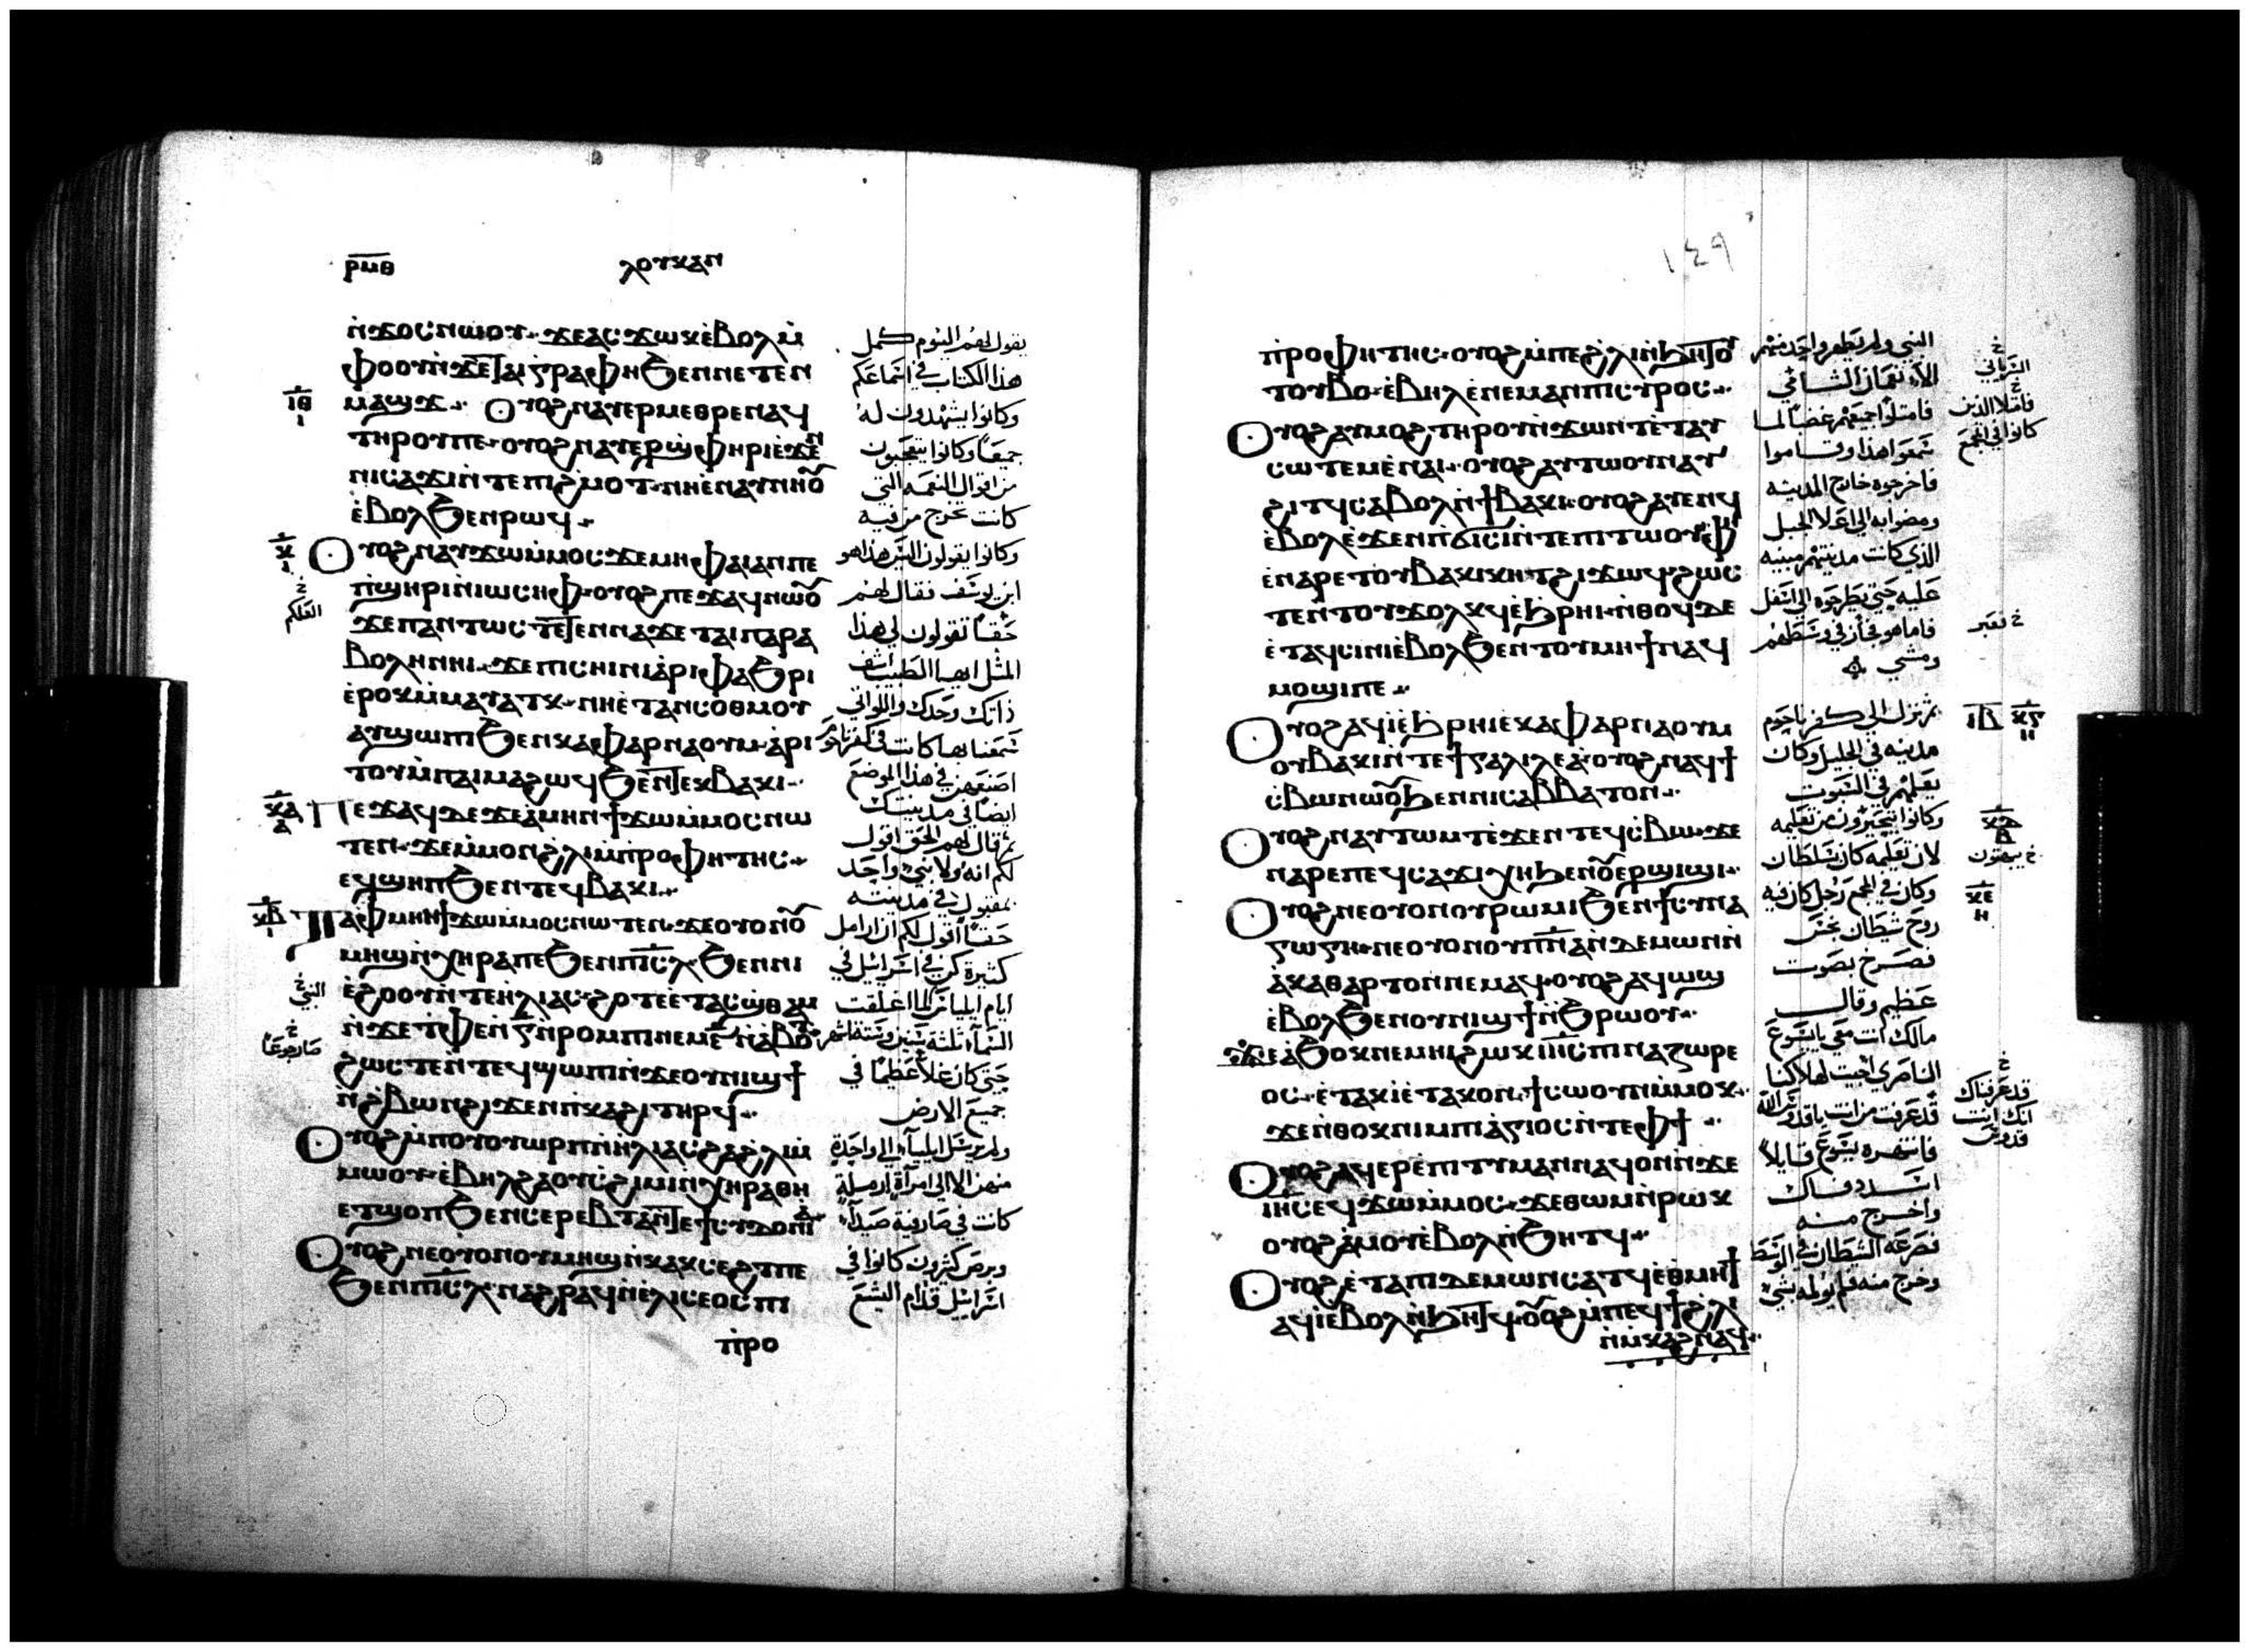 ⲣⲙⲑ
ⲗⲟⲩⲕⲁⲛ
ⲛ̀ϫⲟⲥ ⲛⲱⲟⲩ ϫⲉ ⲁⲥϫⲱⲕ ⲉ̀ⲃⲟⲗ ⲙ̀
ⲫⲟⲟⲩ ⲛ̀ϫⲉ ⲧⲁⲓⲅⲣⲁⲫⲏ ϧⲉⲛ ⲛⲉⲧⲉⲛ
ⲙⲁϣϫ ⲟⲩⲟϩ ⲛⲁⲩⲉⲣⲙⲉⲑⲣⲉ ⲛⲁϥ
ⲧⲏⲣⲟⲩ ⲡⲉ ⲟⲩⲟϩ ⲛⲁⲩⲉⲣϣ̀ⲫⲏⲣⲓ ⲉ̀ϫⲉⲛ
ⲛⲓⲥⲁϫⲓ ⲛ̀ⲧⲉ ⲡⲓϩ̀ⲙⲟⲧ ⲛⲏ ⲉ̀ⲛⲁⲩⲛⲏⲟⲩ
ⲉ̀ⲃⲟⲗ ϧⲉⲛ ⲣⲱϥ
ⲟⲩⲟϩ ⲛⲁⲩϫⲱ ⲙ̀ⲙⲟⲥ ϫⲉ ⲙⲏ ⲫⲁⲓ ⲁⲛ ⲡⲉ
ⲡ̀ϣⲏⲣⲓ ⲛ̀ⲓⲱⲥⲏⲫ ⲟⲩⲟϩ ⲡⲉϫⲁϥ ⲛⲱⲟⲩ
ϫⲉ ⲡⲁⲛⲧⲱⲥ ⲧⲉⲧⲉⲛⲛⲁϫⲉ ⲧⲁⲓⲡⲁⲣⲁ
ⲃⲟⲗⲏ ⲛⲏⲓ ϫⲉ ⲡⲓⲥⲏⲓⲛⲓ ⲁ̀ⲣⲓⲫⲁϧⲣⲓ
ⲉ̀ⲣⲟⲕ ⲙ̀ⲙⲁⲩⲁⲧⲕ ⲛⲏ ⲉ̀ⲧⲁⲛⲥⲟⲑⲙⲟⲩ
ⲁⲩϣⲱⲡⲓ ϧⲉⲛ ⲕⲁⲫⲁⲣⲛⲁⲟⲩⲙ ⲁ̀ⲣⲓ
ⲧⲟⲩ ⲙ̀ⲡⲁⲓⲙⲁ ϩⲱϥ ϧⲉⲛ ⲧⲉⲕⲃⲁⲕⲓ
ⲡⲉϫⲁϥ ⲇⲉ ϫⲉ ⲁ̀ⲙⲏⲛ ϯϫⲱ ⲙ̀ⲙⲟⲥ ⲛⲱ
ⲧⲉⲛ ϫⲉ ⲙ̀ⲙⲟⲛ ϩ̀ⲗⲓ ⲙ̀ⲡ̀ⲣⲟⲫⲏⲧⲏⲥ
ⲉϥϣⲏⲡ ϧⲉⲛ ⲧⲉϥⲃⲁⲕⲓ
ⲧⲁⲫⲙⲏⲓ ϯϫⲱ ⲙ̀ⲙⲟⲥ ⲛⲱⲧⲉⲛ ϫⲉ ⲟⲩⲟⲛ ⲟⲩ
ⲙⲏϣ ⲛ̀ⲭⲏⲣⲁ ⲡⲉ ϧⲉⲛ ⲡⲓⲥⲗ ϧⲉⲛ ⲛⲓ
ⲉ̀ϩⲟⲟⲩ ⲛ̀ⲧⲉ ⲏⲗⲓⲁⲥ ϩⲟⲧⲉ ⲉⲧⲁⲥϣ̀ⲑⲁⲙ
ⲛ̀ϫⲉ ⲧ̀ⲫⲉ ⲛ̀ⲅ̅ ⲛ̀ⲣⲟⲙⲡⲓ ⲛⲉⲙ ⲋ̅ ⲛ̀ⲁ̀ⲃⲟⲧ
ϩⲱⲥⲧⲉ ⲛ̀ⲧⲉϥϣⲱⲡⲓ ⲛ̀ϫⲉ ⲟⲩⲛⲓϣϯ
ⲛ̀ϩ̀ⲃⲱⲛ ϩⲓϫⲉⲛ ⲡ̀ⲕⲁϩⲓ ⲧⲏⲣϥ
ⲟⲩⲟϩ ⲙ̀ⲡⲟⲩⲟⲩⲱⲣⲡ ⲛ̀ⲏⲗⲓⲁⲥ ϩⲁ ϩ̀ⲗⲓ ⲙ̀
ⲙⲱⲟⲩ ⲉ̀ⲃⲏⲗ ϩⲁ ⲟⲩⲥ̀ϩⲓⲙⲓ ⲛ̀ⲭⲏⲣⲁ ⲑⲏ
ⲉⲧϣⲟⲡ ϧⲉⲛ ⲥⲉⲣⲉⲃⲧⲁ ⲛ̀ⲧⲉ ϯⲥⲩⲇⲟⲛⲓⲁ
ⲟⲩⲟϩ ⲛⲉ ⲟⲩⲟⲛ ⲟⲩⲙⲏϣ ⲛ̀ⲕⲁⲕⲥⲉϩⲧ ⲡⲉ
ϧⲉⲛ ⲡⲓⲥⲗ ⲛⲁϩⲣⲁϥ ⲛ̀ⲉ̀ⲗⲓⲥⲉⲟⲥ ⲡⲓ
ⲡ̀ⲣⲟ
يقول لهم اليوم كمل
هذا الكتاب في اسماعكم
وكانوا يشهدون له
جميعا وكانوا يتعجبون
من اقوال النعمه التي
كانت تخرج من فيه
وكانوا يقولون اليس هذا هو
ابن يوسف فقال لهم
حقا تقولون لي هذا
المثل ايها الطبيب اشف
ذاتك وحدك واللواتي
سمعنا بها كانت في كفرناحوم
اصنعهن في هذا الموضع
ايضا في مدينتك
ثم قال لهم الحق اقول
لكم انه ولا نبي واحد
مقبول في مدينته
حقا اقول لكم ان ارامل
كثيرة كن في اسرائيل في
ايام ايلياس لما اغلقت
السماء ثلثة سنين وستة اشهر
حتى كان غلا عظيما في
جميع الارض
ولم يرسل ايلياء الى واحدة
منهن الا الى امرأة ارملة
كانت في صارفية صيدا
وبرص كثيرون كانوا في
اسرائيل قدام اليشع
١٤٩
ⲡ̀ⲣⲟⲫⲏⲧⲏⲥ ⲟⲩⲟϩ ⲙ̀ⲡⲉ ϩ̀ⲗⲓ ⲛ̀ϧⲏⲧⲟⲩ
ⲧⲟⲩⲃⲟ ⲉ̀ⲃⲏⲗ ⲉ̀ⲛⲉⲙⲁⲛ ⲡⲓⲥⲩⲣⲟⲥ
ⲟⲩⲟϩ ⲁⲩⲙⲟϩ ⲧⲏⲣⲟⲩ ⲛ̀ϫⲱⲛⲧ ⲉ̀ⲧⲁⲩ
ⲥⲱⲧⲉⲙ ⲉ̀ⲛⲁⲓ ⲟⲩⲟϩ ⲁⲩⲧⲱⲟⲩⲛ ⲁⲩ
ϩⲓⲧϥ ⲥⲁⲃⲟⲗ ⲛ̀ϯⲃⲁⲕⲓ ⲟⲩⲟϩ ⲁⲩⲉⲛϥ
ⲉ̀ⲃⲟⲗ ⲉ̀ϫⲉⲛ ⲡ̀ϭⲓⲥⲓ ⲛ̀ⲧⲉ ⲡⲓⲧⲱⲟⲩ ⲫⲏ
ⲉ̀ⲛⲁⲣⲉ ⲧⲟⲩⲃⲁⲕⲓ ⲕⲏⲧ ϩⲓϫⲱϥ ϩⲱⲥ
ⲧⲉ ⲛ̀ⲧⲟⲩϫⲟⲗⲕϥ ⲉ̀ϧⲣⲏⲓ ⲛ̀ⲑⲟϥ ⲇⲉ
ⲉ̀ⲧⲁϥⲥⲓⲛⲓ ⲉ̀ⲃⲟⲗ ϧⲉⲛ ⲧⲟⲩⲙⲏϯ ⲛⲁϥ
ⲙⲟϣⲓ ⲡⲉ
ⲟⲩⲟϩ ⲁϥⲓ̀ ⲉ̀ϧⲣⲏⲓ ⲉ̀ⲕⲁⲫⲁⲣⲛⲁⲟⲩⲙ
ⲟⲩⲃⲁⲕⲓ ⲛ̀ⲧⲉ ϯⲅⲁⲗⲓⲗⲉⲁ ⲟⲩⲟϩ ⲛⲁϥϯ
ⲥ̀ⲃⲱ ⲛⲱⲟⲩ ϧⲉⲛ ⲛⲓⲥⲁⲃⲃⲁⲧⲟⲛ
ⲟⲩⲟϩ ⲛⲁⲩⲧⲱⲙⲧ ⲉ̀ϫⲉⲛ ⲧⲉϥⲥ̀ⲃⲱ ϫⲉ
ⲛⲁⲣⲉ ⲡⲉϥⲥⲁϫⲓ ⲭⲏ ϧⲉⲛ ⲟⲩⲉⲣϣⲓϣⲓ
ⲟⲩⲟϩ ⲛⲉ ⲟⲩⲟⲛ ⲟⲩⲣⲱⲙⲓ ϧⲉⲛ ϯⲥⲩⲛⲁ
ⲅⲱⲅⲏ ⲛⲉ ⲟⲩⲟⲛ ⲟⲩⲡⲛⲁ ⲛ̀ⲇⲉⲙⲱⲛ ⲛ̀
ⲁ̀ⲕⲁⲑⲁⲣⲧⲟⲛ ⲛⲉⲙⲁϥ ⲟⲩⲟϩ ⲁϥⲱϣ
ⲉ̀ⲃⲟⲗ ϧⲉⲛ ⲟⲩⲛⲓϣϯ ⲛ̀ϧⲣⲱⲟⲩ
ϫⲉ ⲁ̀ϧⲟⲕ ⲛⲉⲙⲏⲓ ϩⲱⲕ ⲓⲏⲥ ⲡⲓⲛⲁⲍⲱⲣⲉ
ⲟⲥ ⲉ̀ⲧⲁⲕⲓ̀ ⲉ̀ⲧⲁⲕⲟⲛ ϯⲥⲱⲟⲩⲛ ⲙ̀ⲙⲟⲕ
ϫⲉ ⲛ̀ⲑⲟⲕ ⲛⲓⲙ ⲡⲓⲁ̀ⲅⲓⲟⲥ ⲛ̀ⲧⲉ ⲫϯ
ⲟⲩⲟϩ ⲁϥⲉⲣⲉ̀ⲡⲓⲧⲓⲙⲁⲛ ⲛⲁϥ ⲛ̀ϫⲉ
ⲓⲏⲥ ⲉϥϫⲱ ⲙ̀ⲙⲟⲥ ϫⲉ ⲑⲱⲙ ⲛ̀ⲣⲱⲕ
ⲟⲩⲟϩ ⲁ̀ⲙⲟⲩ ⲉ̀ⲃⲟⲗ ⲛ̀ϧⲏⲧϥ
ⲟⲩⲟϩ ⲉ̀ⲧⲁ ⲡⲓⲇⲉⲙⲱⲛ ⲥⲁⲧϥ ⲉ̀ⲑⲙⲏϯ
ⲁϥⲓ̀ ⲉ̀ⲃⲟⲗ ⲛ̀ϧⲏⲧϥ ⲟⲩⲟϩ ⲙ̀ⲡⲉϥϯ ϩ̀ⲗⲓ
ⲛ̀ⲙ̀ⲕⲁϩ ⲛⲁϥ
النبي ولم يطهر واحد منهم
الا نعمان الشامي
فامتلوا جميعهم غضبا لما
سمعوا هذا وقاموا
فاخرجوه خارج المدينه
ومضوا به الى اعلا الجبل
الذي كانت مدينتهم مبنيه
عليه حتى يطرحوه الى اسفل
فاما هو فجاز في وسطهم
ومشي
ثم نزل الى كفرناحوم
مدينه في الجليل وكان
يعلمهم في السبوت
وكانوا يتحيرون من تعليمه
لان تعليمه كان بسلطان
وكان في المجمع رجل كان فيه
روح شيطان نجس
فصرخ بصوت
عظيم وقال
مالك انت معي يا يسوع
الناصري اتيت لهلاكنا
قد عرفت من انت يا قدوس الله
فانتهره يسوع قايلا
اسدد فاك
واخرج منه
فصرعه الشيطان في الوسط
وخرج منه فلم يولمه شي
السرياني
فامتلا الذين
كانوا في المجمع
خ فعبر
خ يبهتون
قد عرفناك
انك انت
قدوس